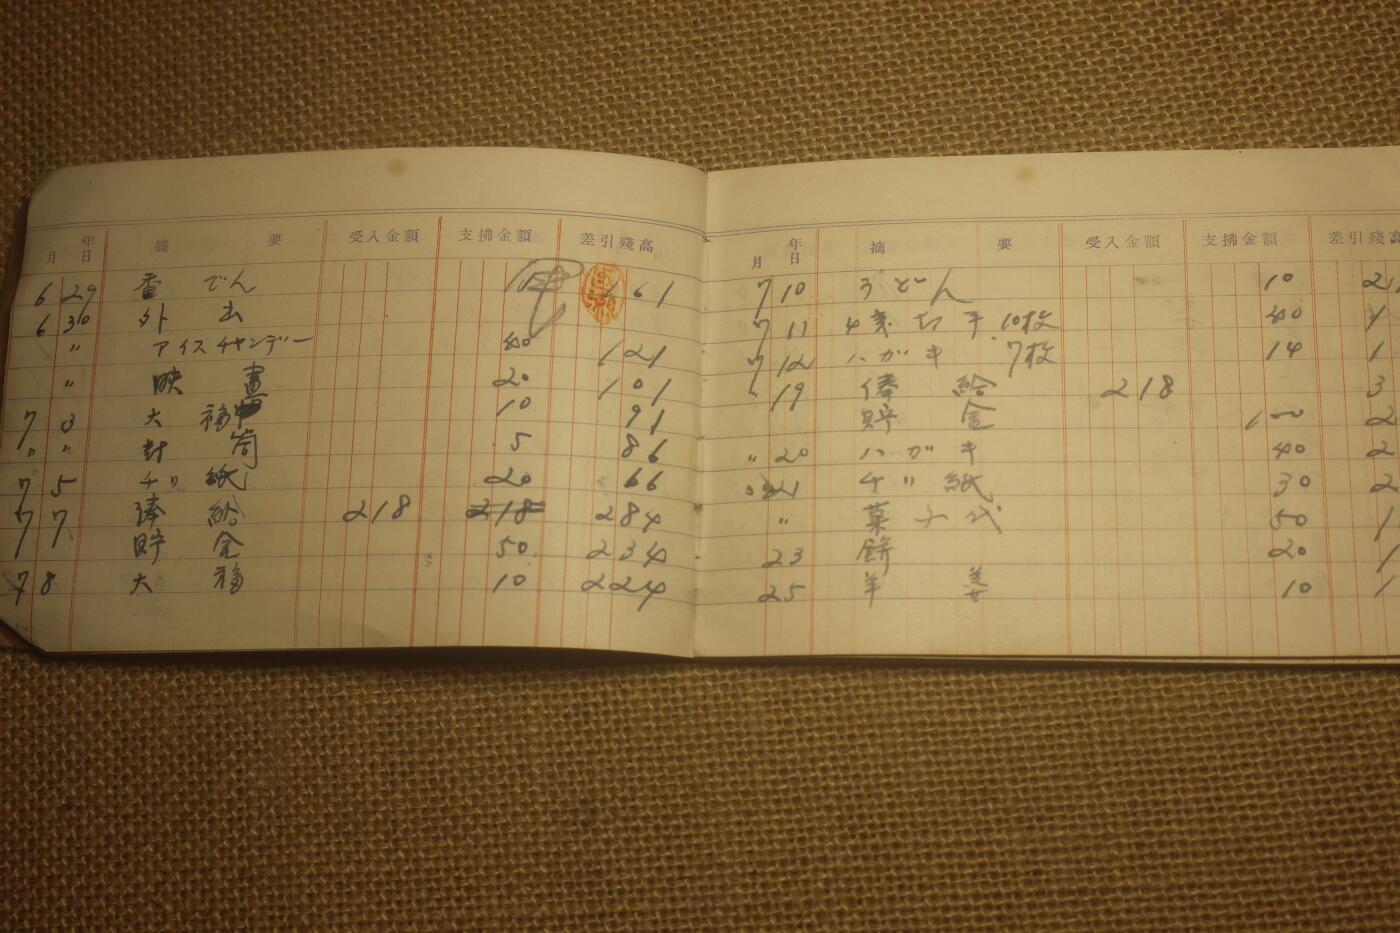 年
月 日 摘 要 受入金額 支拂金額 差引殘高
6 29 でん 161
6 30 外 出
〃 アイスキャンデー 40 121
〃 映 畫 20 101
7 3 大 福 10 91
〃 〃 封 筒 5 86
7 5 チリ 紙 20 66
7 7 俸 給 218 218 284
貯 金 50 234
7 8 大 福 10 224
年
月 日 摘 要 受入金額 支拂金額 差引殘高
7 10 うどん 10 21
7 11 4戋 切 手 10枚 40 1
〃 12 ハガキ 7枚 14 1
〃 19 俸 給 218 3
貯 金 2
〃 20 ハガキ 40 2
21 チリ 紙 30 2
〃 菓 子 代 50 1
23 餅 20 1
25 羊 羹 10 1